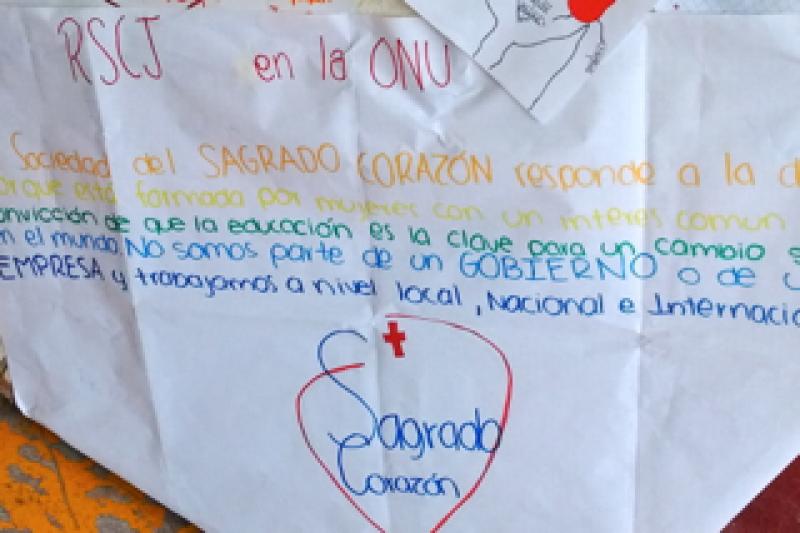 RSCJ en la ONU
Sociedad del SAGRADO CORAZÓN responde a la
está formada por mujeres con un interes común
de que la educación es la clave para un cambio
el mundo. NO somos parte de un GOBIERNO o de
EMPRESA y trabajamos a nivel local, Nacional e
Sagrado
Corazón